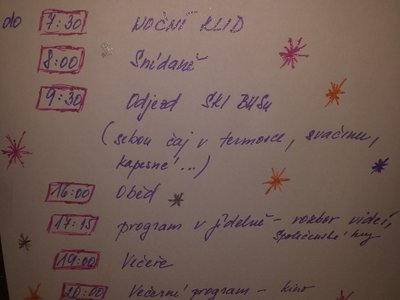 do 7:30 NOČNÍ KLID
8:00 Snídaně
9:30 Odjezd SKI BUSu
(sebou čaj v termosce, svačinu,
kapesné...)
16:00 Oběd
17:15 program v jídelně - rozbor videí,
Společenské hry
19:00 Večeře
20:00 Večerní program - kino